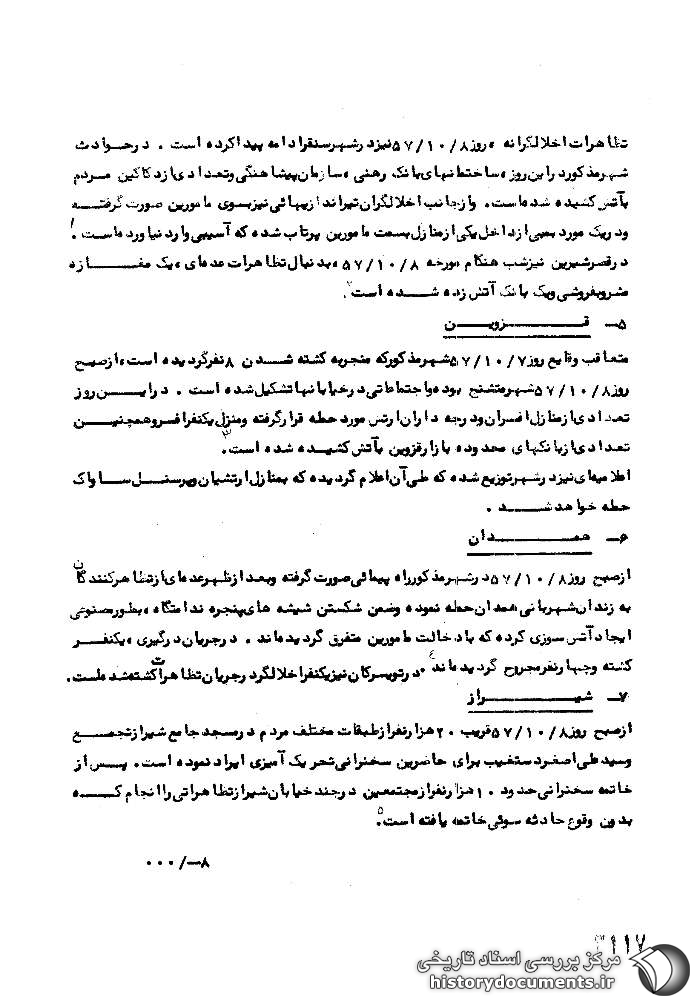 تظاهرات اخلالگرانه ، روز ۵۷/۱۰/۸ نیز در شهر سنقر ادامه پیدا کرده است . در حوادث
شهر مذکور در این روز ، ساختمانهای بانک رهنی ، سازمان پیشاهنگی و تعدادی از دکاکین مردم
بآتش کشیده شده است . و از جانب اخلالگران تیراندازیهائی نیز بسوی مامورین صورت گرفته
و در یک مورد بمبی از داخل یکی از منازل بسمت مامورین پرتاب شده که آسیبی وارد نیاورده است .
در قصرشیرین نیز شب هنگام مورخه ۵۷/۱۰/۸ ، بدنبال تظاهرات عده ای ، یک مغازه
مشروبفروشی و یک بانک آتش زده شده است .
۵- قزوین
متعاقب وقایع روز ۵۷/۱۰/۷ شهر مذکور که منجر به کشته شدن ۸ نفر گردیده است ، از صبح
روز ۵۷/۱۰/۸ شهر متشنج بوده و اجتماعاتی در خیابانها تشکیل شده است . در این روز
تعدادی از منازل افسران و درجه داران ارتش مورد حمله قرار گرفته و منزل یکنفر افسر و همچنین
تعدادی از بانکهای محدوده بازار قزوین بآتش کشیده شده است .۳
اعلامیه ای نیز در شهر توزیع شده که طی آن اعلام گردیده که بمنازل ارتشیان و پرسنل ساواک
حمله خواهد شد .
۶- همدان
از صبح روز ۵۷/۱۰/۸ در شهر مذکور راه پیمائی صورت گرفته و بعد از ظهر عده ای از تظاهر کنندگان
به زندان شهربانی همدان حمله نموده و ضمن شکستن شیشه های پنجره ندامتگاه ، بطور مصنوعی
ایجاد آتش سوزی کرده که با دخالت مامورین متفرق گردیده اند . در جریان درگیری ، یکنفر
کشته و چهار نفر مجروح گردیده اند .۴ در تویسرکان نیز یکنفر اخلالگر در جریان تظاهرات کشته شده است .
۷- شیراز
از صبح روز ۵۷/۱۰/۸ قریب ۲۰ هزار نفر از طبقات مختلف مردم در مسجد جامع شیراز تجمع
و سید علی اصغر دستغیب برای حاضرین سخنرانی تحریک آمیزی ایراد نموده است . پس از
خاتمه سخنرانی حدود ۱۰ هزار نفر از مجتمعین در چند خیابان شیراز تظاهراتی را انجام که
بدون وقوع حادثه سوئی خاتمه یافته است .۵
۸-/۰۰۰
۳۱۱۷
مرکز بررسی اسناد تاریخی
historydocuments.ir